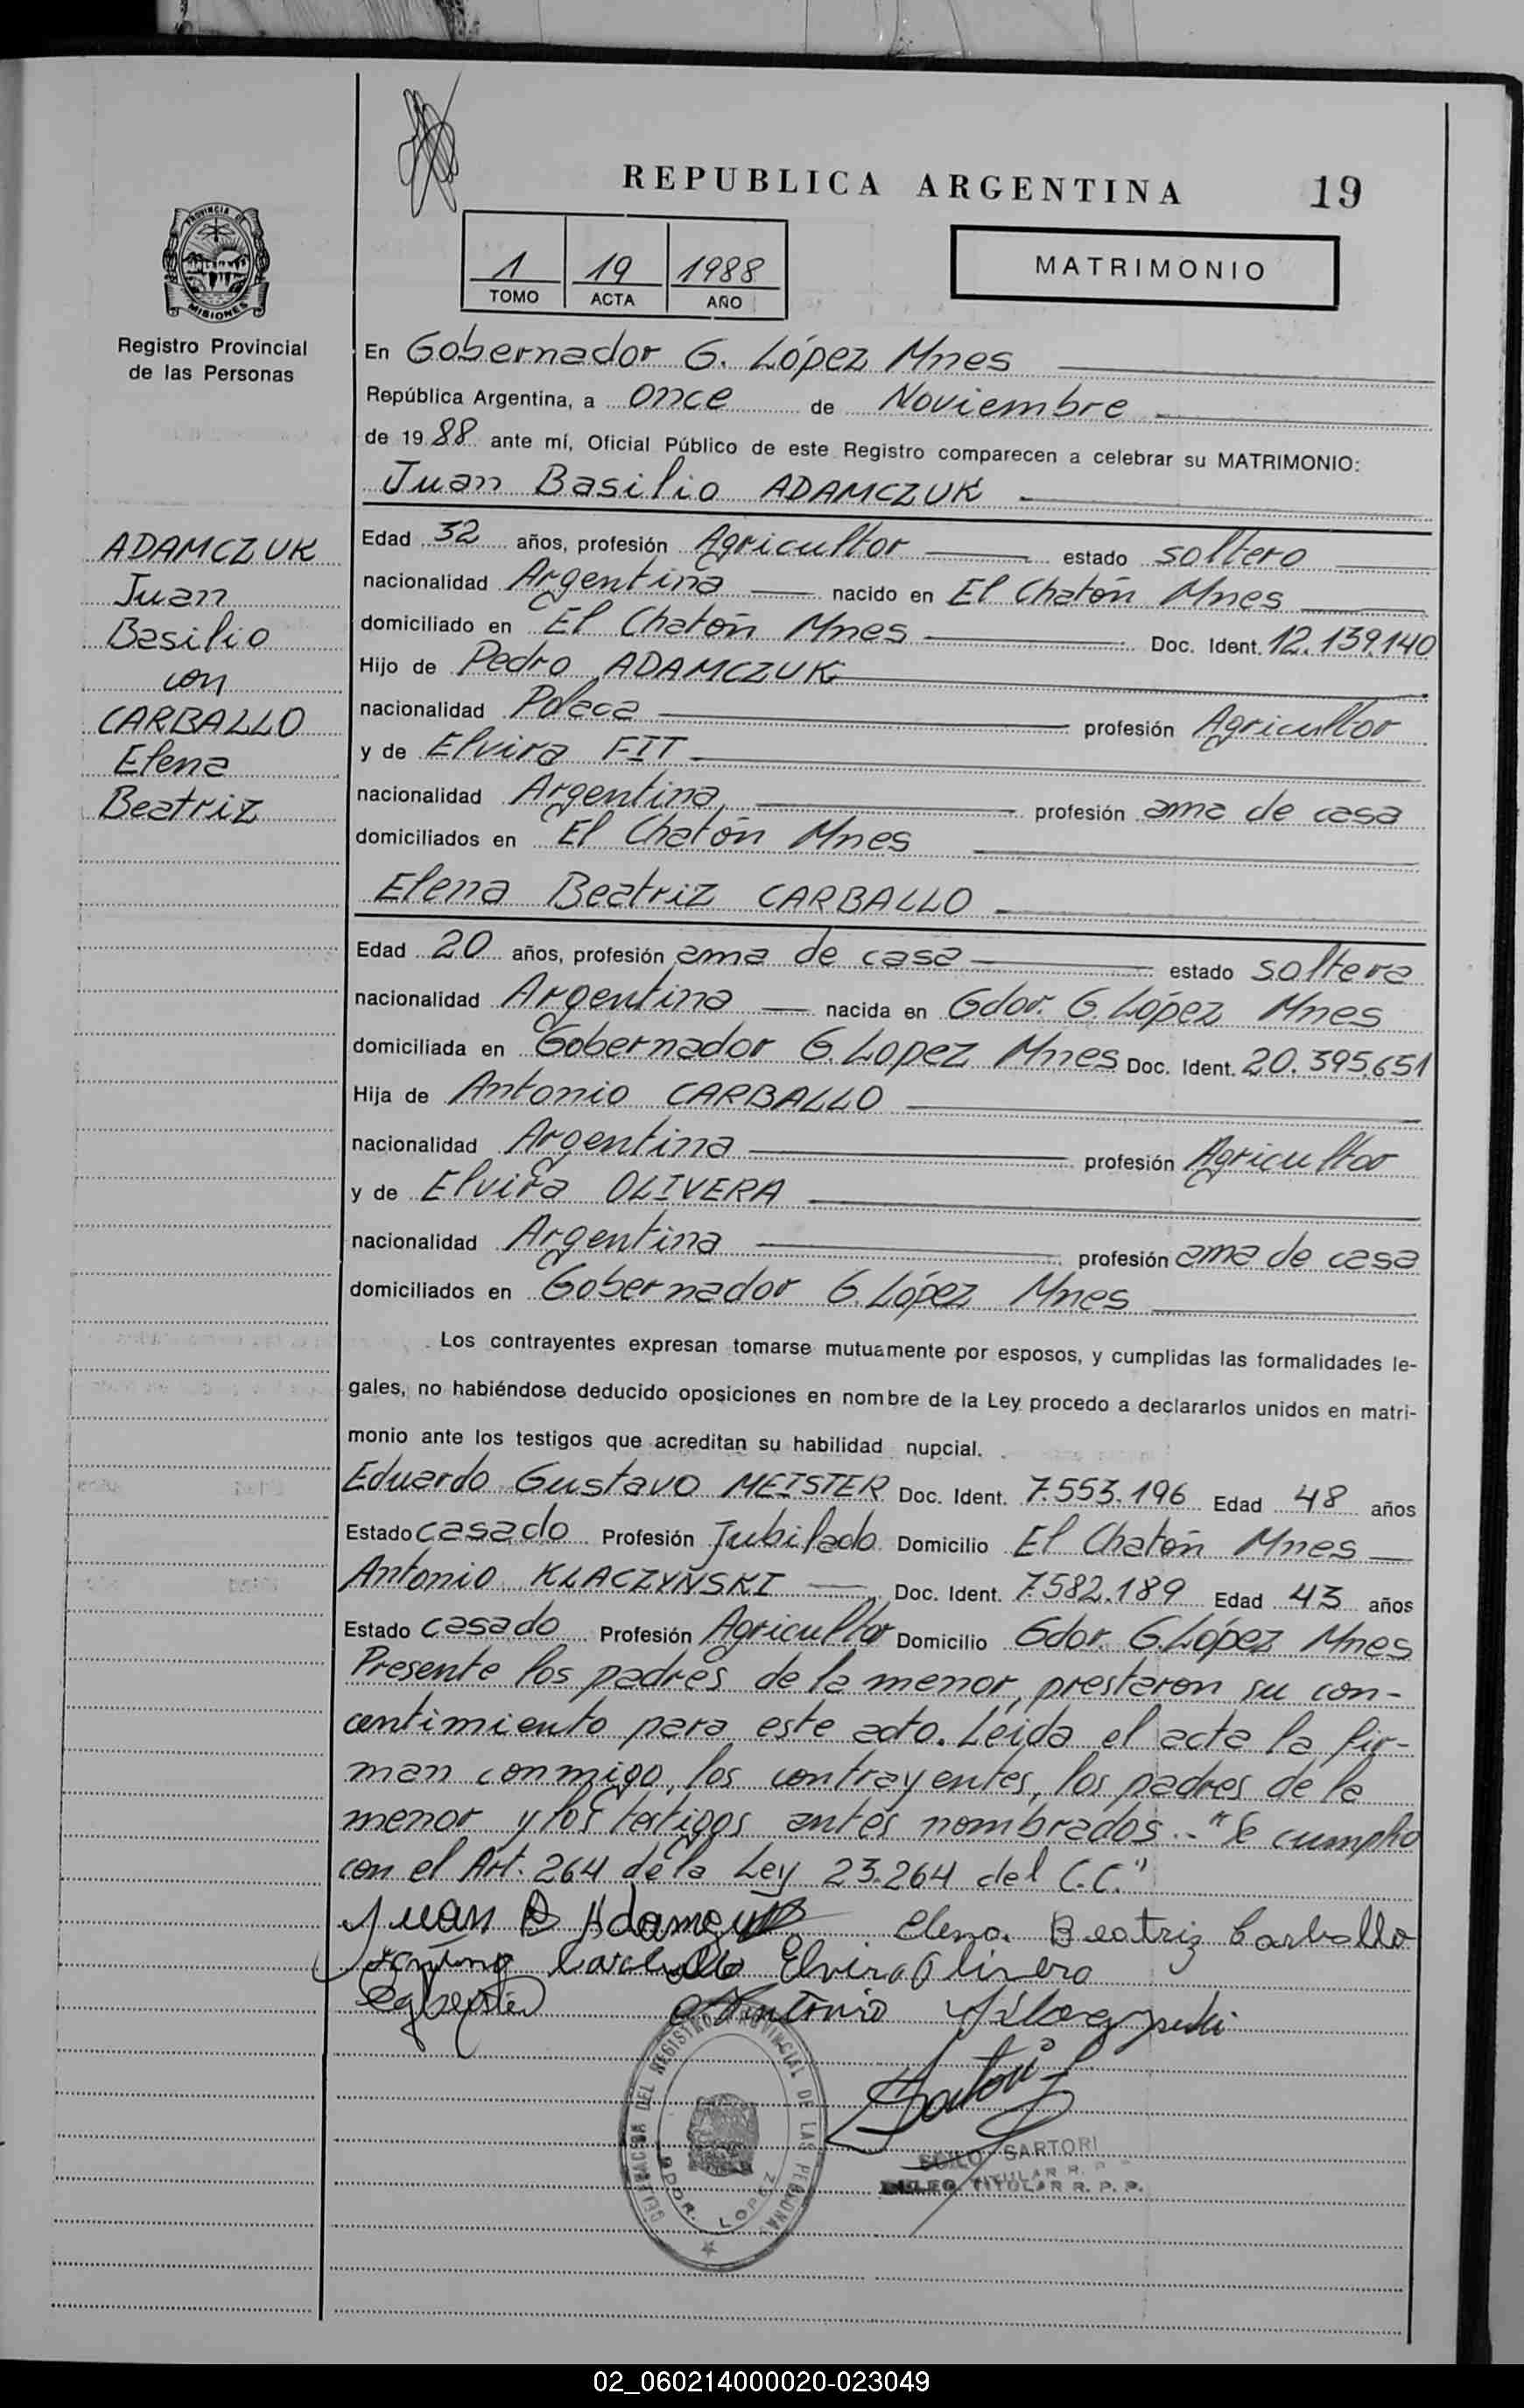 REPUBLICA ARGENTINA 19
1 19 1988
TOMO ACTA AÑO
MATRIMONIO
PROVINCIA DE
MISIONES
Registro Provincial
de las Personas
ADAMCZUK
Juan
Basilio
con
CARBALLO
Elena
Beatriz
En Gobernador G. López Mnes
República Argentina, a once de Noviembre
de 1988 ante mí, Oficial Público de este Registro comparecen a celebrar su MATRIMONIO:
Juan Basilio ADAMCZUK
Edad 32 años, profesión Agricultor estado soltero
nacionalidad Argentina nacido en El Chatón Mnes
domiciliado en El Chatón Mnes Doc. Ident. 12.139.140
Hijo de Pedro ADAMCZUK
nacionalidad Polaca profesión Agricultor
y de Elvira FIT
nacionalidad Argentina profesión ama de casa
domiciliados en El Chatón Mnes
Elena Beatriz CARBALLO
Edad 20 años, profesión ama de casa estado soltera
nacionalidad Argentina nacida en Gdor. G. López Mnes
domiciliada en Gobernador G. Lopez Mnes Doc. Ident. 20.395.651
Hija de Antonio CARBALLO
nacionalidad Argentina profesión Agricultor
y de Elvira OLIVERA
nacionalidad Argentina profesión ama de casa
domiciliados en Gobernador G. López Mnes
Los contrayentes expresan tomarse mutuamente por esposos, y cumplidas las formalidades le-
gales, no habiéndose deducido oposiciones en nombre de la Ley procedo a declararlos unidos en matri-
monio ante los testigos que acreditan su habilidad nupcial.
Eduardo Gustavo MEISTER Doc. Ident. 7.553.196 Edad 48 años
Estado casado Profesión Jubilado Domicilio El Chatón Mnes
Antonio KLACZYŃSKI Doc. Ident. 7.582.189 Edad 43 años
Estado casado Profesión Agricultor Domicilio Gdor. G. López Mnes
Presente los padres de la menor, prestaron su con-
centimiento para este acto. Leida el acta la fir-
man conmigo, los contrayentes, los padres de la
menor y los testigos antes nombrados.- "Se cumplio
con el Art. 264 de la Ley 23.264 del C.C."
Juan B Adamczuk Elena Beatriz Carballo
Carballo Elvira Olivera
Antonio
Sartori
DEL REGISTRO PROVINCIAL DE LAS PERSONAS
GDOR. LOPEZ
SARTORI
TITULAR R. P. P.
02_060214000020-023049